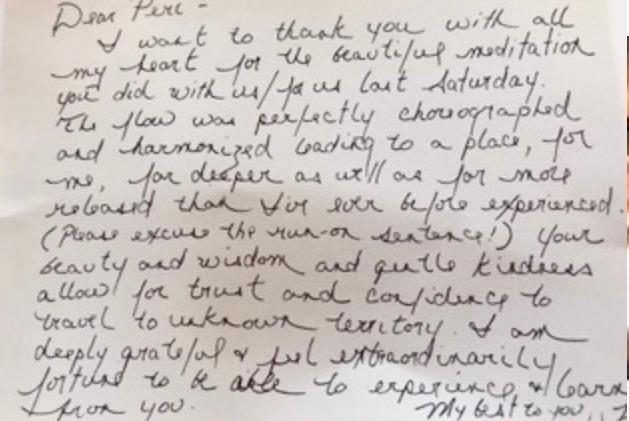 Dear Peri -
I want to thank you with all
my heart for the beautiful meditation
you did with us/for us last Saturday.
The flow was perfectly choreographed
and harmonized leading to a place, for
me, far deeper as well as far more
released than I've ever before experienced.
(Please excuse the run-on sentence!) Your
beauty and wisdom and gentle kindness
allow for trust and confidence to
travel to unknown territory. I am
deeply grateful & feel extraordinarily
fortune to be able to experience & learn
from you.
My best to you,